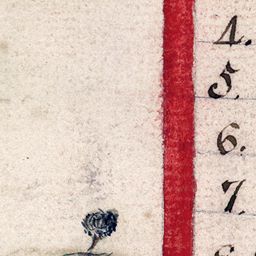 4.
5.
6.
7.